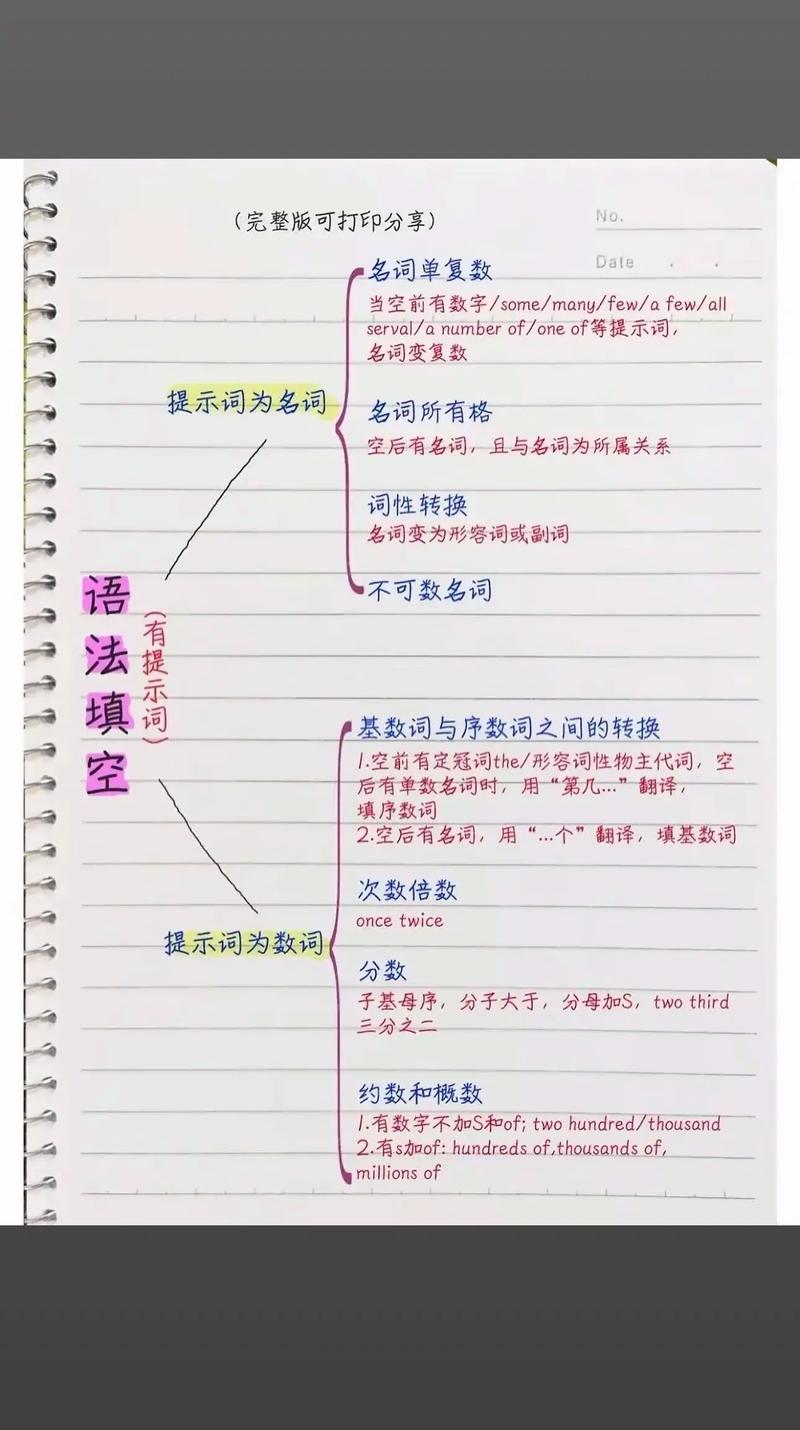 （完整版可打印分享）
No.
Date
名词单复数
当空前有数字/some/many/few/a few/all
serval/a number of/one of等提示词，
名词变复数
提示词为名词
名词所有格
空后有名词，且与名词为所属关系
词性转换
名词变为形容词或副词
不可数名词
语法填空
（有提示词）
基数词与序数词之间的转换
1.空前有定冠词the/形容词性物主代词，空
后有单数名词时，用“第几...”翻译，
填序数词
2.空后有名词，用“...个”翻译，填基数词
次数倍数
once twice
提示词为数词
分数
子基母序，分子大于，分母加S，two third
三分之二
约数和概数
1.有数字不加S和of; two hundred/thousand
2.有s加of: hundreds of,thousands of,
millions of